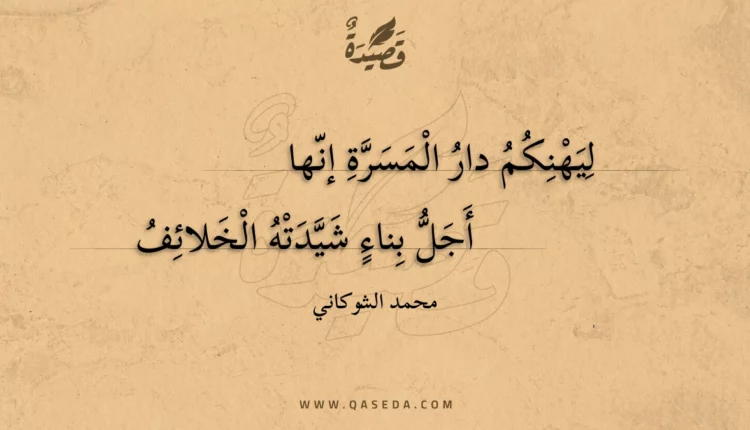 قَصِيدَةٌ
لِيَهْنِكُمُ دارُ الْمَسَرَّةِ إنّها
أَجَلُّ بِناءٍ شَيَّدَتْهُ الْخَلائِفُ
محمد الشوكاني
WWW.QASEDA.COM